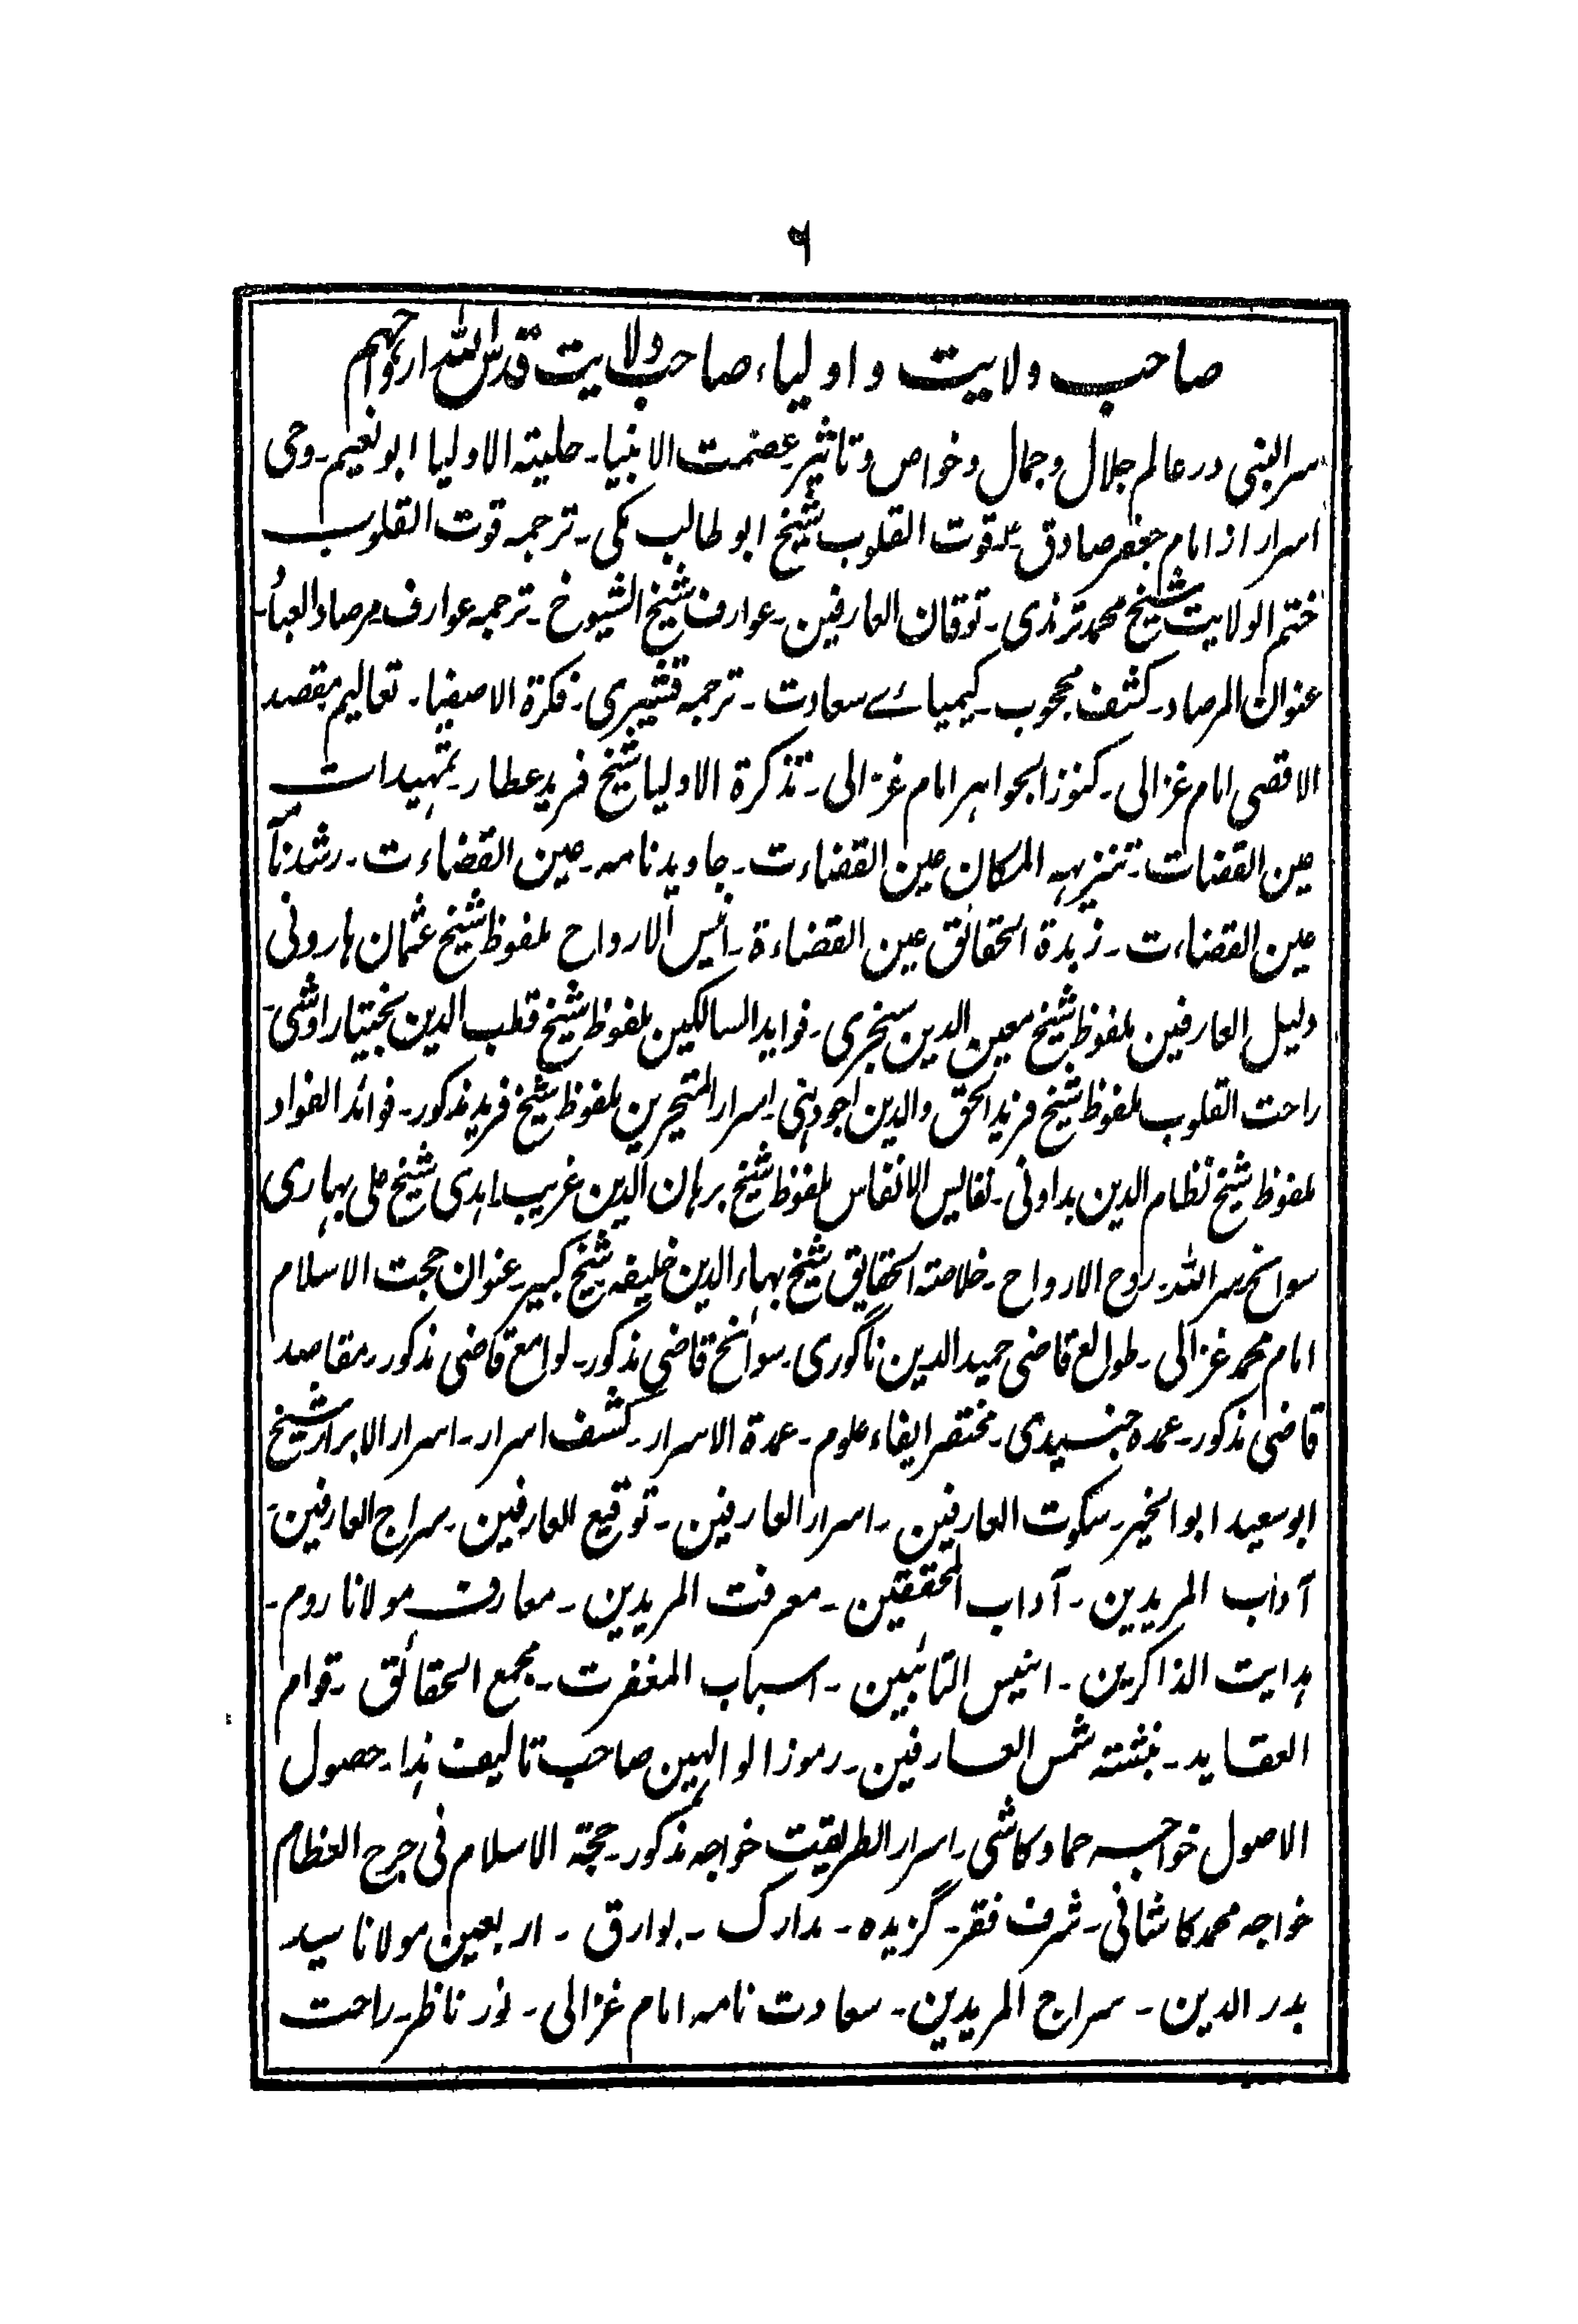 ۶
صاحب ولایت و اولیاء صاحب ولایت قدس اللہ ارواحہم
سر النبی در عالم جلال و جمال و خواص و تاثیر عصمت الانبیا۔ حلیتہ الاولیا ابو نعیم۔ وحی
اسرار از امام جعفر صادق قوت القلوب شیخ ابو طالب مکی۔ ترجمہ قوت القلوب
ختم الولایت شیخ محمد ترمذی۔ توقان العارفین۔ عوارف شیخ الشیوخ۔ ترجمہ عوارف مرصاد العباد۔
عنوان المرصاد۔ کشف محجوب۔ کیمیائے سعادت۔ ترجمہ قشیری۔ فکرۃ الاصفیا۔ تعالیم مقصد
الاقصی امام غزالی۔ کنوز الجواہر امام غزالی۔ تذکرۃ الاولیا شیخ فرید عطار۔ تمہیدات
عین القضات۔ تنزیہہ المکان عین القضاءت۔ جاوید نامہ۔ عین القضاءت۔ رشدنآ
عین القضاءت۔ زبدۃ الحقائق عین القضاءۃ۔ انیس الارواح ملفوظ شیخ عثمان ہارونی
دلیل العارفین ملفوظ شیخ معین الدین سنجری۔ فواید السالکین ملفوظ شیخ قطب الدین بختیار اوشی۔
راحت القلوب ملفوظ شیخ فرید الحق والدین اجودہنی۔ اسرار المتحیرین ملفوظ شیخ فرید مذکور۔ فوائد الفواد
ملفوظ شیخ نظام الدین بداونی۔ نفایس الانفاس ملفوظ شیخ برہان الدین غریب۔ شیخ علی بہاری
سوانح سر اللہ۔ روح الارواح۔ خلاصتہ الحقایق شیخ بہاء الدین خلیفہ شیخ کبیر۔ عنوان حجت الاسلام
امام محمد غزالی۔ طوالع قاضی حمید الدین ناگوری۔ سوانح قاضی مذکور۔ لوامع قاضی مذکور۔ مقاصد
قاضی مذکور۔ عمدہ جنیدی۔ مختصر ایفاء علوم۔ عمدۃ الاسرار۔ کشف اسرار۔ اسرار الابرار شیخ
ابو سعید ابو الخیر۔ سکوت العارفین۔ اسرار العارفین۔ توقیع العارفین۔ سراج العارفین۔
آداب المریدین۔ آداب المحققین۔ معرفت المریدین۔ معارف مولانا روم۔
ہدایت الذاکرین۔ انیس التائبین۔ اسباب المغفرت۔ مجمع الحقائق۔ قوام
العقاید۔ نبشتہ شمس العارفین۔ رموز الوالہین صاحب تالیف ہذا۔ حصول
الاصول خواجہ حماد کاشی۔ اسرار الطریقت خواجہ مذکور۔ حجتہ الاسلام فی جرح العظام
خواجہ محمد کاشانی۔ شرف فقر۔ گزیدہ۔ مدارک۔ بوارق۔ اربعین مولانا سید
بدر الدین۔ سراج المریدین۔ سعادت نامہ امام غزالی۔ نور ناظر۔ راحت